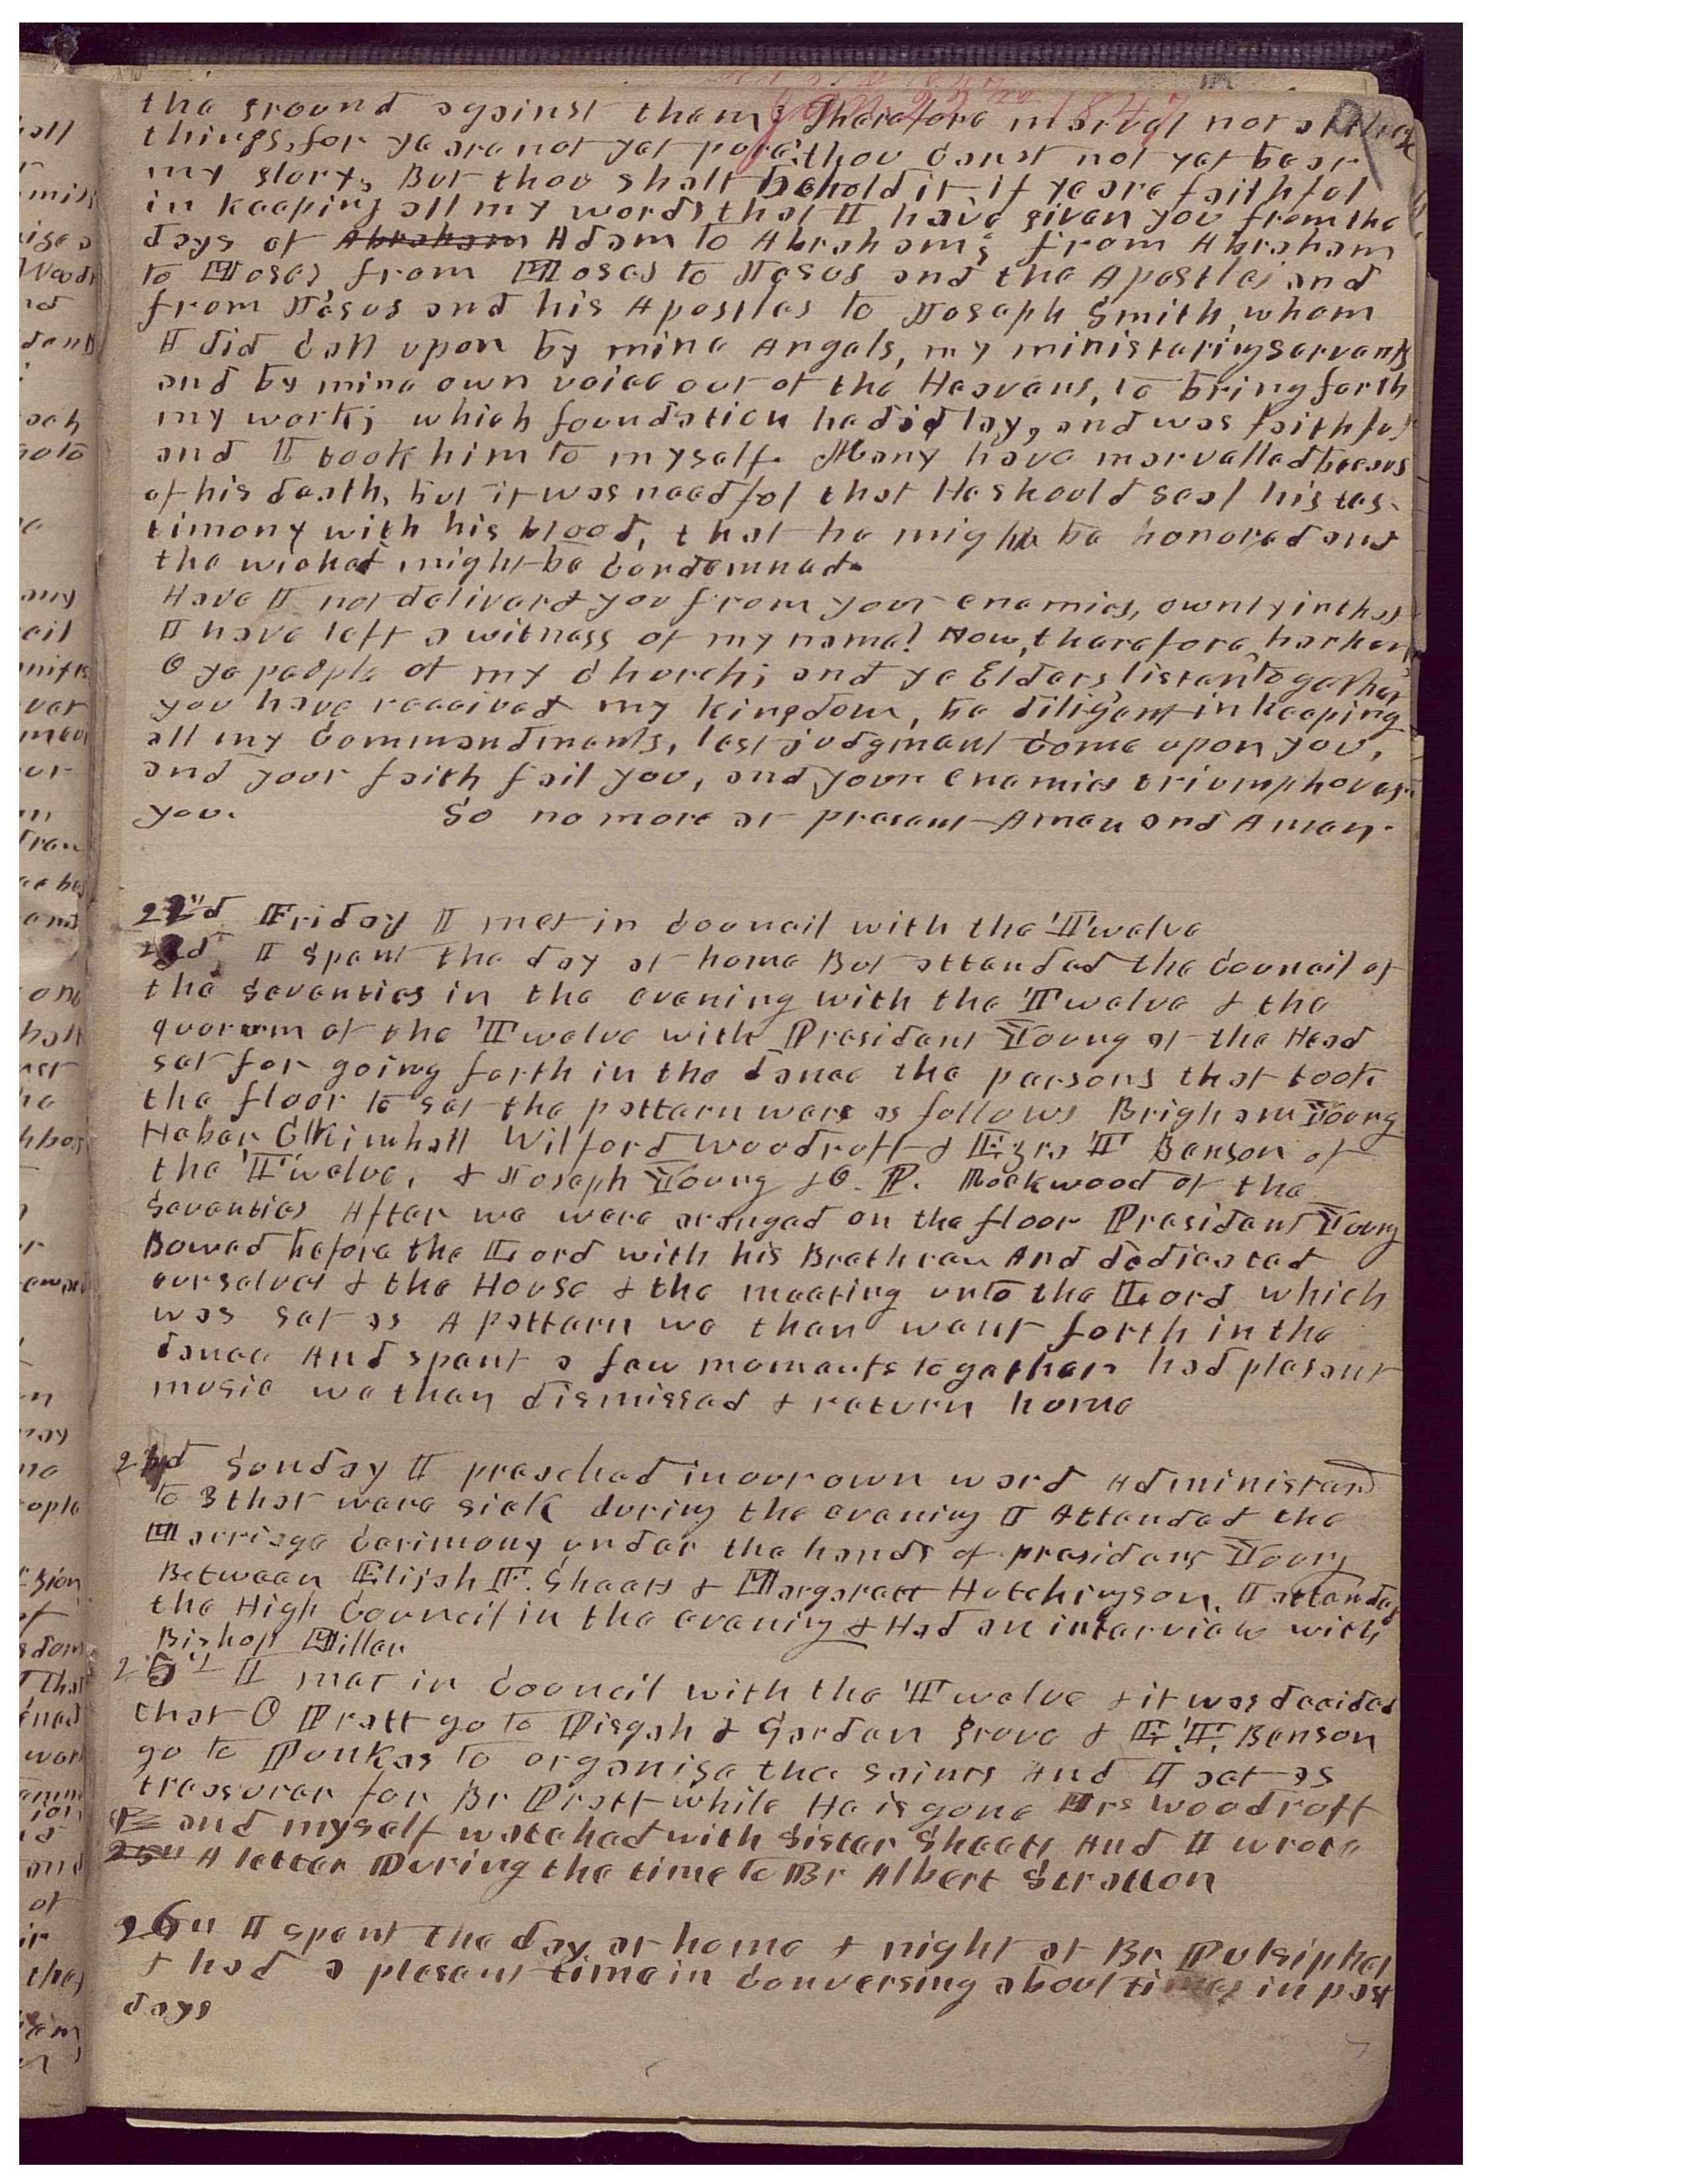 Jan 22 1847
the ground against them; Therefore marvel not at these
things, for ye are not yet pure; thou canst not yet bear
my glory, But thou shalt behold it if ye are faithful
in keeping all my words that I have given you from the
days of Abraham Adam to Abraham; from Abraham
to Moses, from Moses to Jesus and the Apostles and
from Jesus and his Apostles to Joseph Smith, whom
I did call upon by mine Angels, my ministering servants
and by mine own voice out of the Heavens, to bring forth
my work; which foundation he did lay, and was faithful
and I took him to myself. Many have marvelled because
of his death, but it was needful that He should seal his tes-
timony with his blood, that he might be honored and
the wicked might be condemned.
Have I not deliverd you from your enemies, ownly in that
I have left a witness of my name? Now, therefore, harken,
O ye people of my church; and ye Elders listen together,
you have receeived my kingdom, be diligent in keeping
all my commandments, lest judgment come upon you,
and your faith fail you, and your enemies triumph over
you. So no more at present Amen and Amen.
22nd Friday I met in council with the Twelve
23d I spent the day at home But attended the council of
the seventies in the evening with the Twelve & the
quorum of the Twelve with President Young at the Head
set for going forth in the dance the persons that took
the floor to set the pattern were as follows Brigham Young
Heber C Kimball Wilford Woodruff & Ezra T Benson of
the Twelve, & Joseph Young & A. P. Rockwood of the
Seventies After we were aranged on the floor President Young
Bowed before the Lord with his Brethren And dedicated
ourselves & the House & the meeting unto the Lord which
was set as A pattern we then went forth in the
dance And spent a few moments together had plesant
music we then dismissed & return home
24d Sunday I preached in our own ward Administerd
to 3 that were sick during the evening I Attended the
Marriage cerimony under the hands of president Young
Between Elijah F. Sheets & Margarett Hutchingson. I attended
the High Council in the evening & Had an interview with
Bishop Miller
25th I met in council with the Twelve & it was decided
that O Pratt go to Pisgah & Garden grove & E. T. Benson
go to Punkas to organise the saints And I act as
treasurer for Br Pratt while He is gone Mrs Woodruff
and myself watched with Sister Sheets And I wrote
25th A letter During the time to Br Albert Stratton
26th I spent the day at home & night at Br Pulsipher
& had a plesant time in conversing about times in past
days